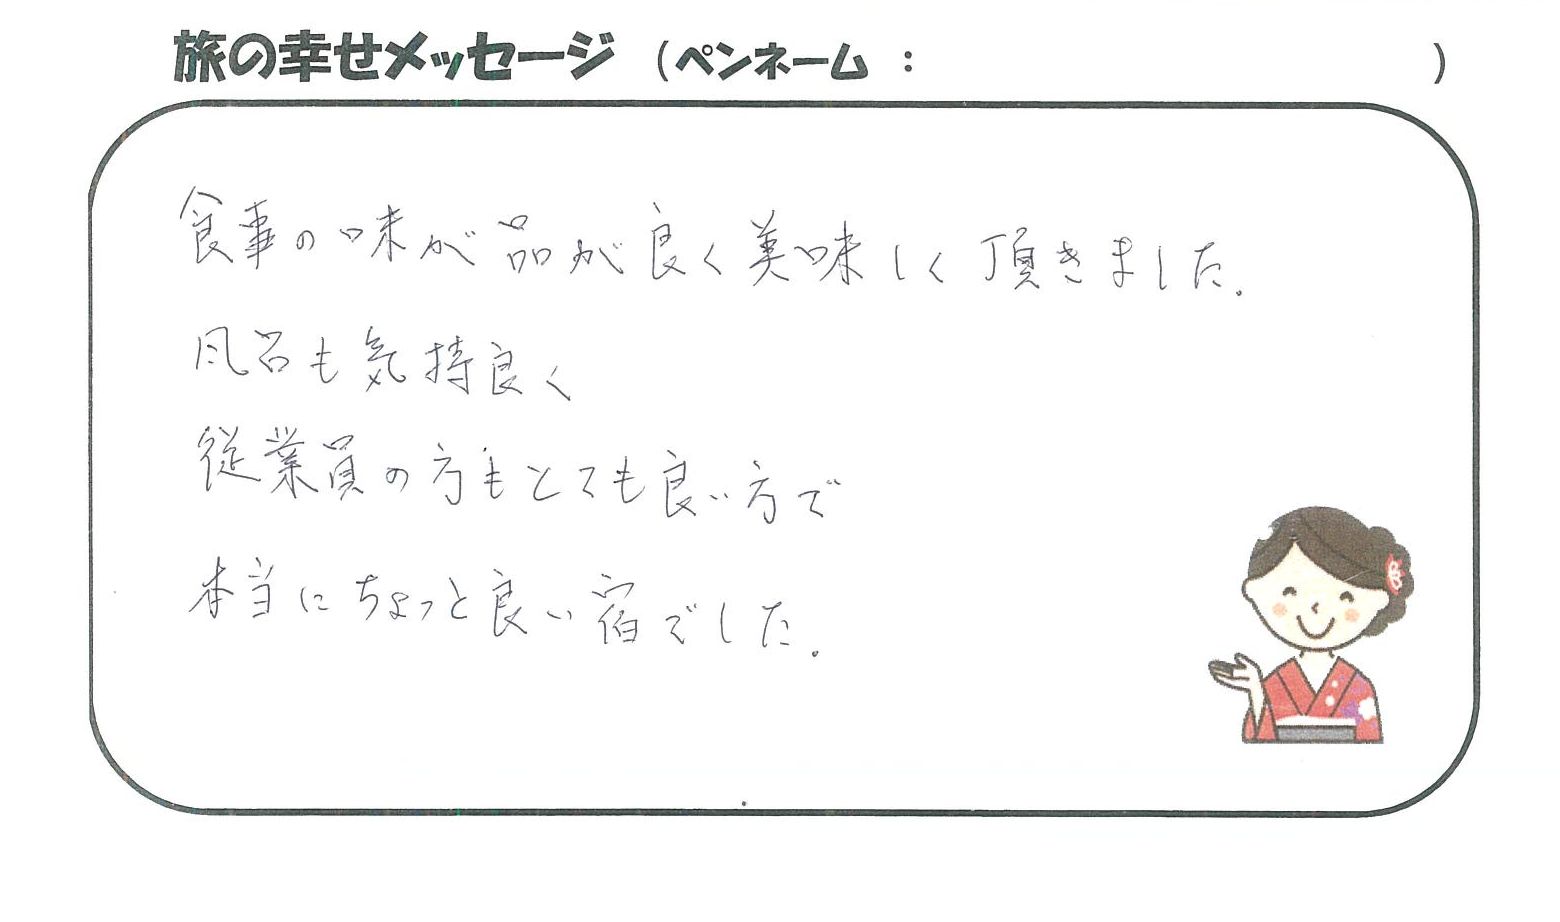 旅の幸せメッセージ（ペンネーム：　　　　　　　　）
食事の味が品が良く美味しく頂きました.
風呂も気持良く
従業員の方もとても良い方で
本当にちょっと良い宿でした.